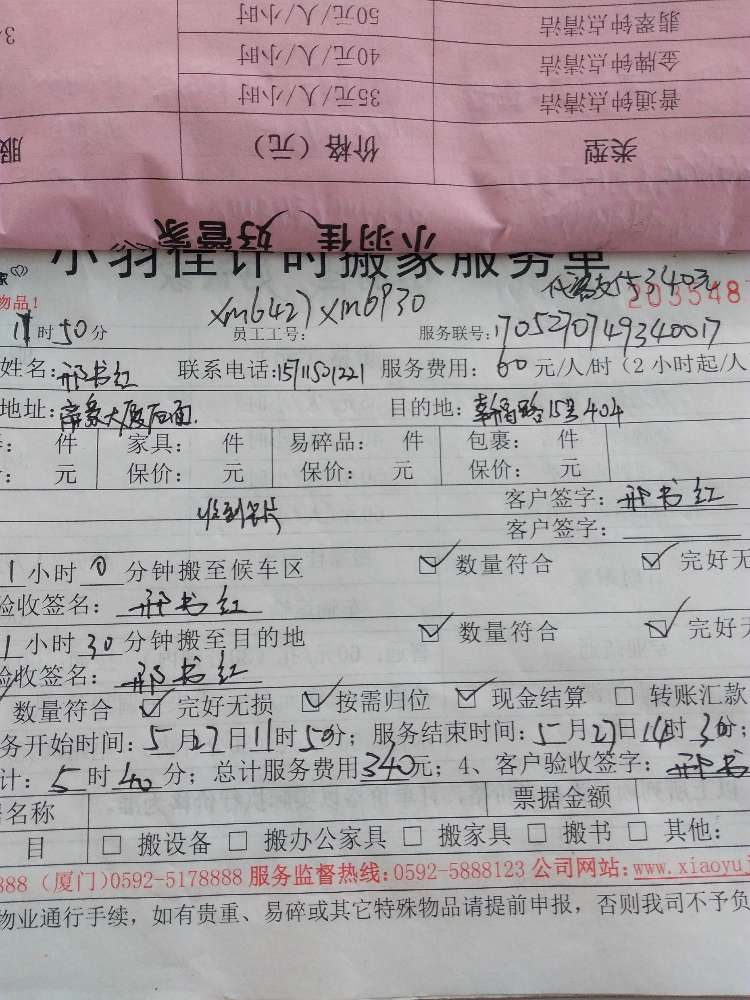 翡翠钟点清洁 50元/人/小时
金牌钟点清洁 40元/人/小时
普通钟点清洁 35元/人/小时
类型 价格（元） 服
小羽佳 好管家
小羽佳计时搬家服务单
340元
物品！ xm6427 xm6930 2035487
11时50分 员工工号： 服务联号：1705270749340017
姓名：邢书红 联系电话：15711521221 服务费用：60元/人/时（2小时起/人
地址：帝豪大厦后面 目的地：幸福路15号404
件 家具： 件 易碎品： 件 包裹： 件
元 保价： 元 保价： 元 保价： 元
收到名片 客户签字：邢书红
客户签字：
1小时0分钟搬至候车区 ☑ 数量符合 ☑ 完好无
验收签名：邢书红
1小时30分钟搬至目的地 ☑ 数量符合 ☑ 完好无
验收签名：邢书红
数量符合 ☑ 完好无损 ☑ 按需归位 ☑ 现金结算 □ 转账汇款
务开始时间：5月27日11时50分；服务结束时间：5月27日14时30分；
计：5时40分；总计服务费用340元；4、客户验收签字：邢书
名称 票据金额
目 □ 搬设备 □ 搬办公家具 □ 搬家具 □ 搬书 □ 其他：
888（厦门）0592-5178888 服务监督热线：0592-5888123 公司网站：www.xiaoyuj
物业通行手续，如有贵重、易碎或其它特殊物品请提前申报，否则我司不予负